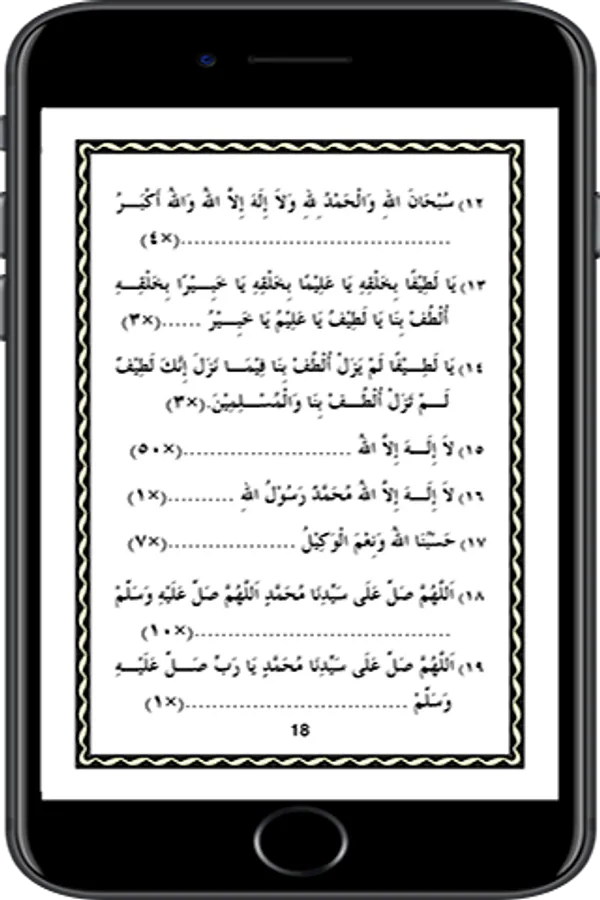 ١٢) سُبْحَانَ اللهِ وَالْحَمْدُ لِلهِ وَلَا إِلَهَ إِلاَّ اللهُ وَاللهُ أَكْبَـــرُ
.........................................(×٤)
١٣) يَا لَطِيْفًا بِخَلْقِهِ يَا عَلِيْمًا بِخَلْقِهِ يَا خَبِـــيْرًا بِخَلْقِـــهِ
أُلْطُفْ بِنَا يَا لَطِيْفُ يَا عَلِيْمُ يَا خَبِـــيْرُ ......(×٣)
١٤) يَا لَطِـــيْفًا لَمْ يَزَلْ أُلْطُفْ بِنَا فِيْمَـــا نَزَلَ إِنَّكَ لَطِيْفٌ
لَـــمْ تَزَلْ أُلْطُـــفْ بِنَا وَالْمُسْـــلِمِيْنَ.(×٣)
١٥) لاَ إِلَـــهَ إِلاَّ اللهُ .........................(×٥٠)
١٦) لاَ إِلَـــهَ إِلاَّ اللهُ مُحَمَّدٌ رَسُوْلُ اللهِ ..........(×١)
١٧) حَسْبُنَا اللهُ وَنِعْمَ الْوَكِيْلُ ...................(×٧)
١٨) اَللّهُمَّ صَلِّ عَلَى سَيِّدِنَا مُحَمَّدٍ اَللّهُمَّ صَلِّ عَلَيْهِ وَسَلِّمْ
.......................................(×١٠)
١٩) اَللّهُمَّ صَلِّ عَلَى سَيِّدِنَا مُحَمَّدٍ يَا رَبِّ صَـــلِّ عَلَيْـــهِ
وَسَلِّمْ ..................................(×١)
18